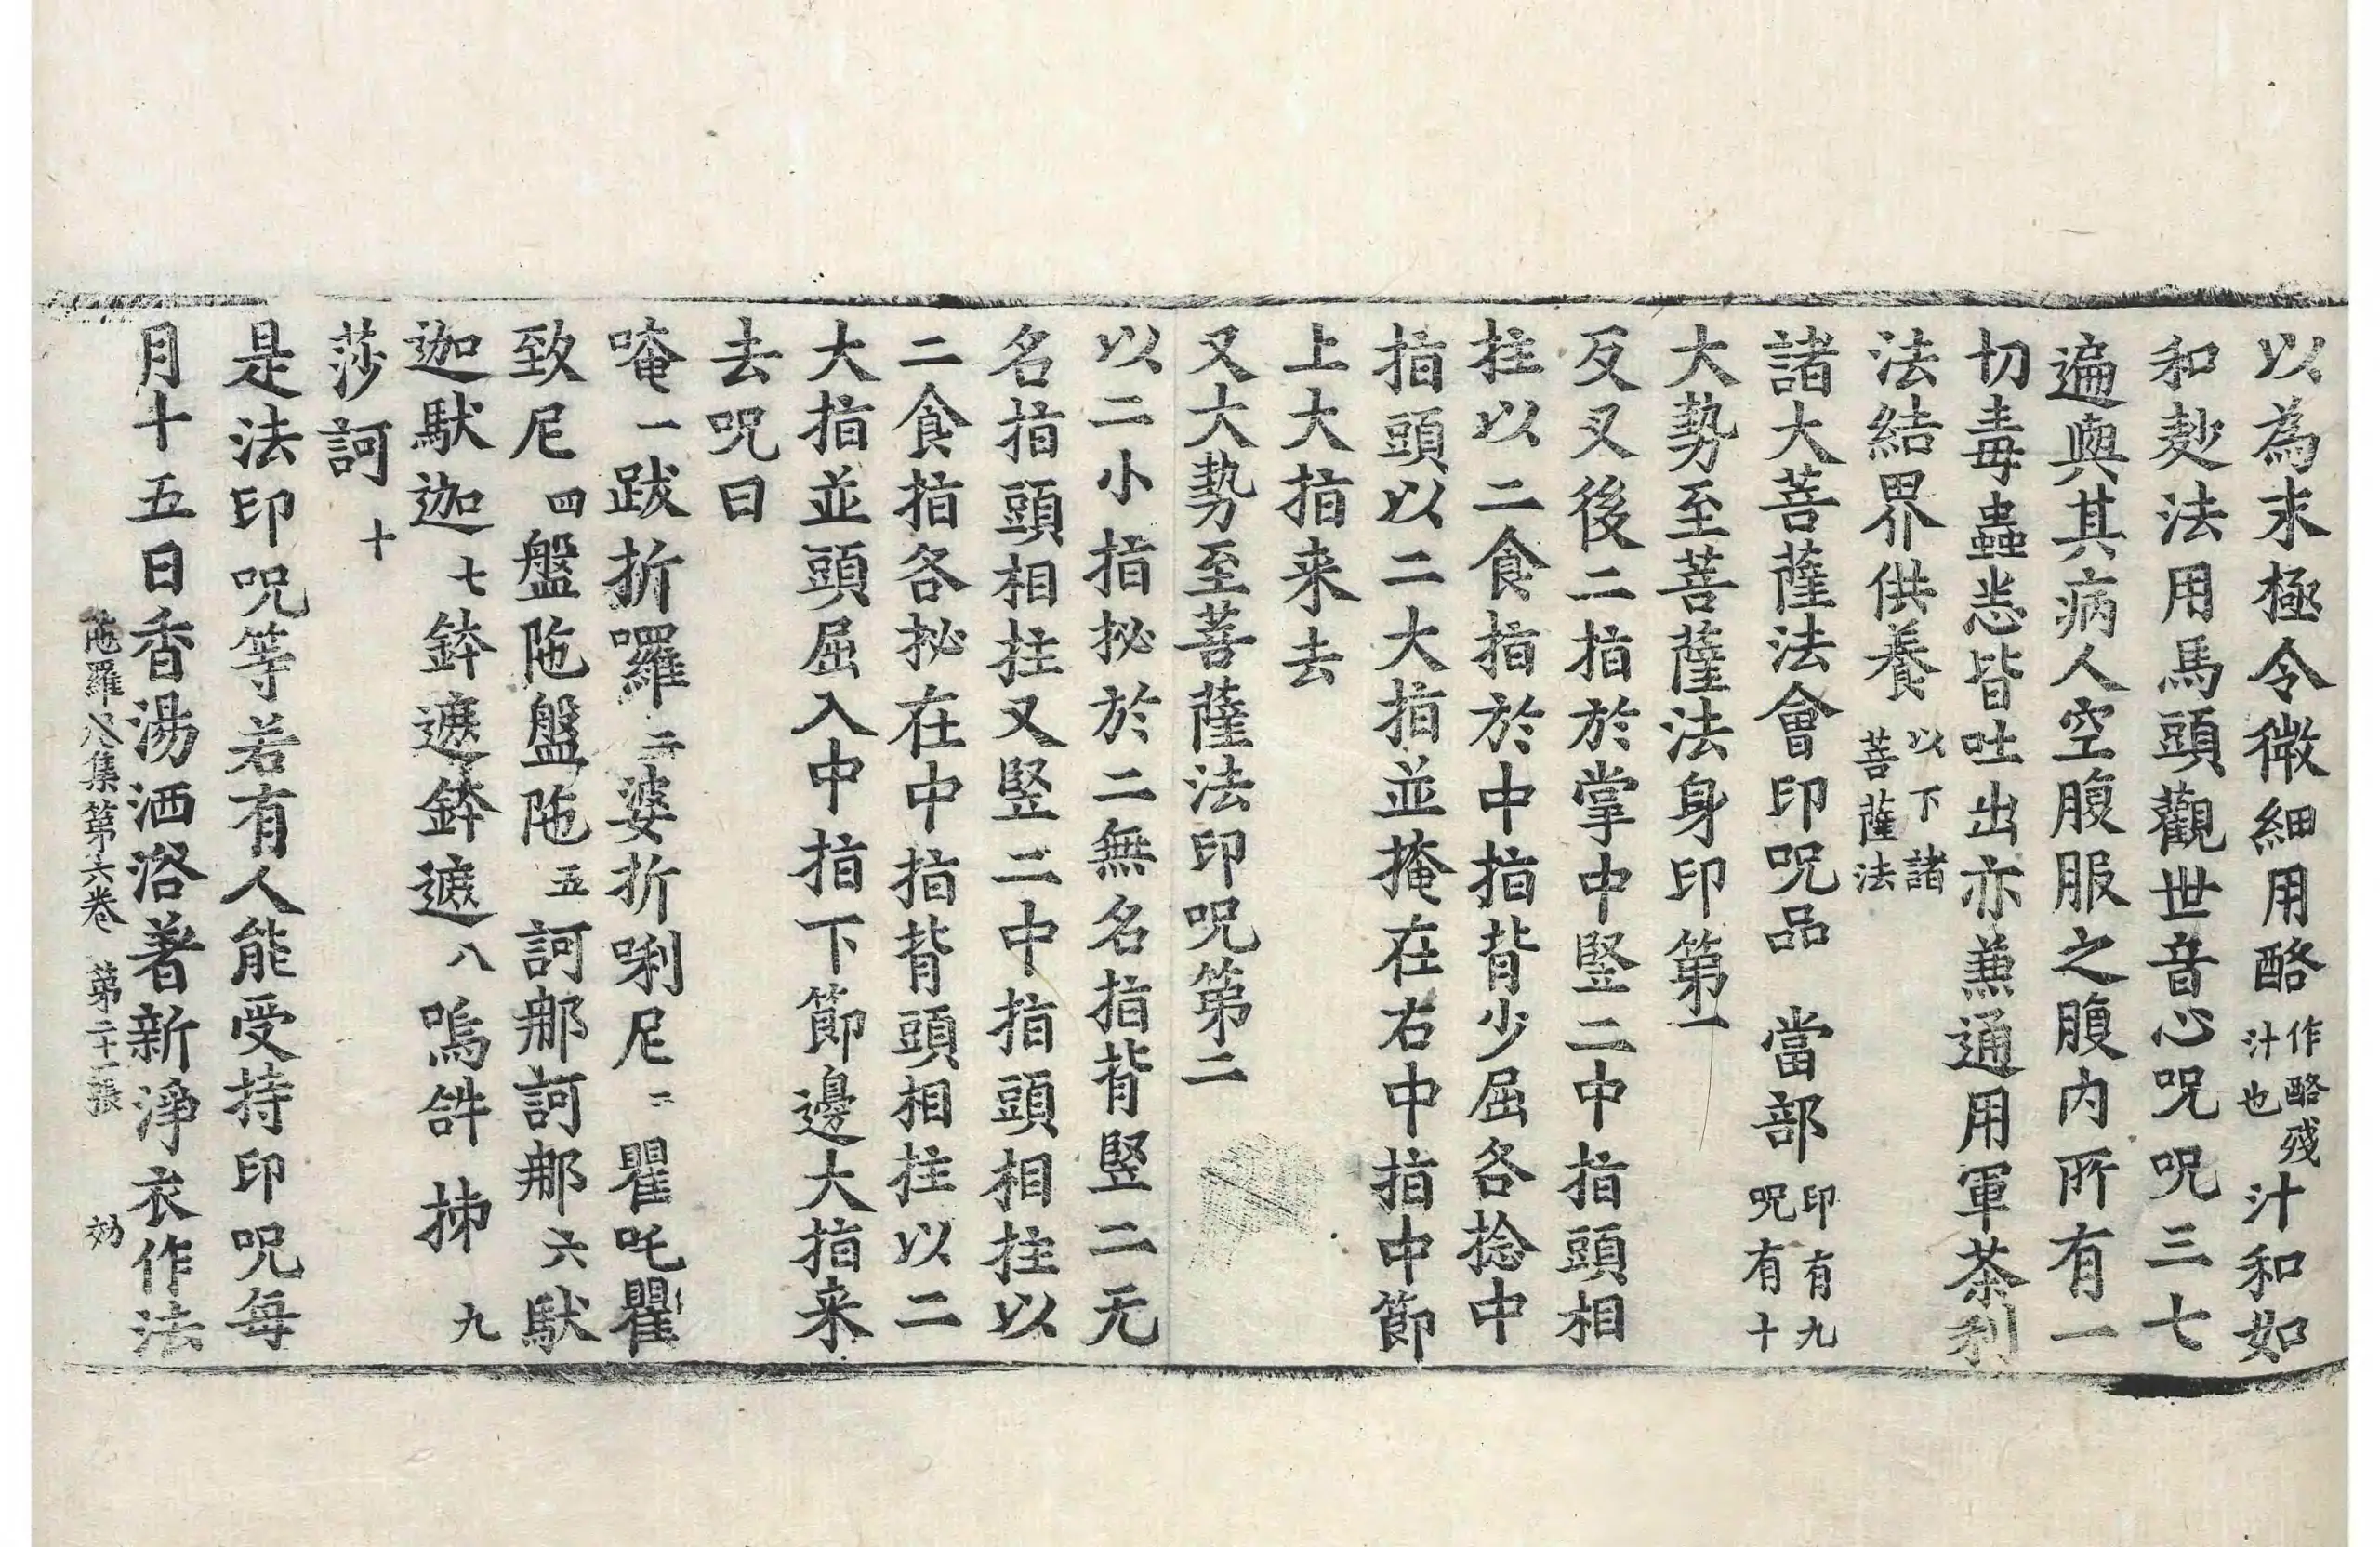 以為末極令微細用酪作酪殘汁也汁和如
和麨法用馬頭觀世音心呪呪三七
遍與其病人空腹服之腹內所有一
切毒蟲悉皆吐出亦兼通用軍茶利
法結界供養以下諸菩薩法
諸大菩薩法會印呪品　當部印有九呪有十
大勢至菩薩法身印第一
反叉後二指於掌中竪二中指頭相
拄以二食指於中指背少屈各捻中
指頭以二大指並掩在右中指中節
上大指来去
又大勢至菩薩法印呪第二
以二小指䏶於二無名指背竪二无
名指頭相拄又竪二中指頭相拄以
二食指各䏶在中指背頭相拄以二
大指並頭屈入中指下節邊大指来
去呪曰
唵一跋折囉二婆折唎尼三瞿吒瞿
致尼四盤陁盤陁五訶那訶那六馱
迦馱迦七鉢遮鉢遮八嗚𤙖㧊九
莎訶十
是法印呪等若有人能受持印呪每
月十五日香湯洒浴著新淨衣作法
陁羅尼集第六卷　第二十一張　効